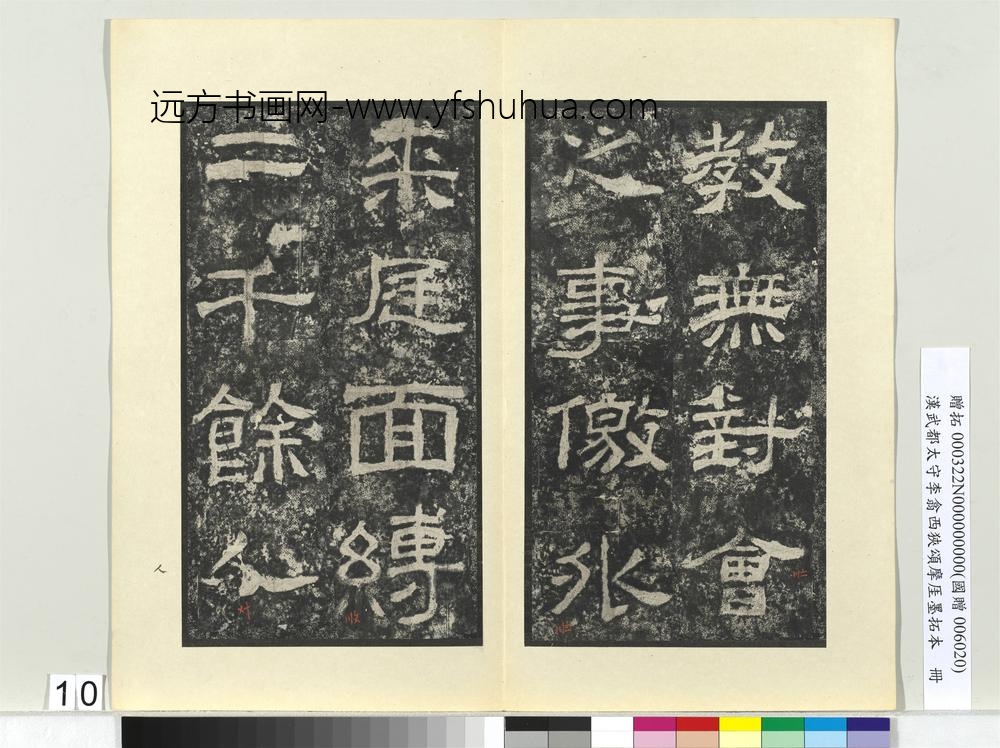 远方书画网-www.yfshuhua.com
教無對會
之事儌外
來庭面縛
二千餘人
人
贈拓 000322N000000000(國贈 006020)
漢武都太守李翕西狹頌摩厓墨拓本 冊
10